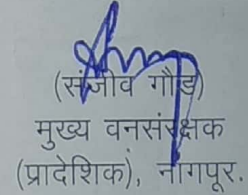 (संजीव गौड)
मुख्य वनसंरक्षक
(प्रादेशिक), नागपूर.